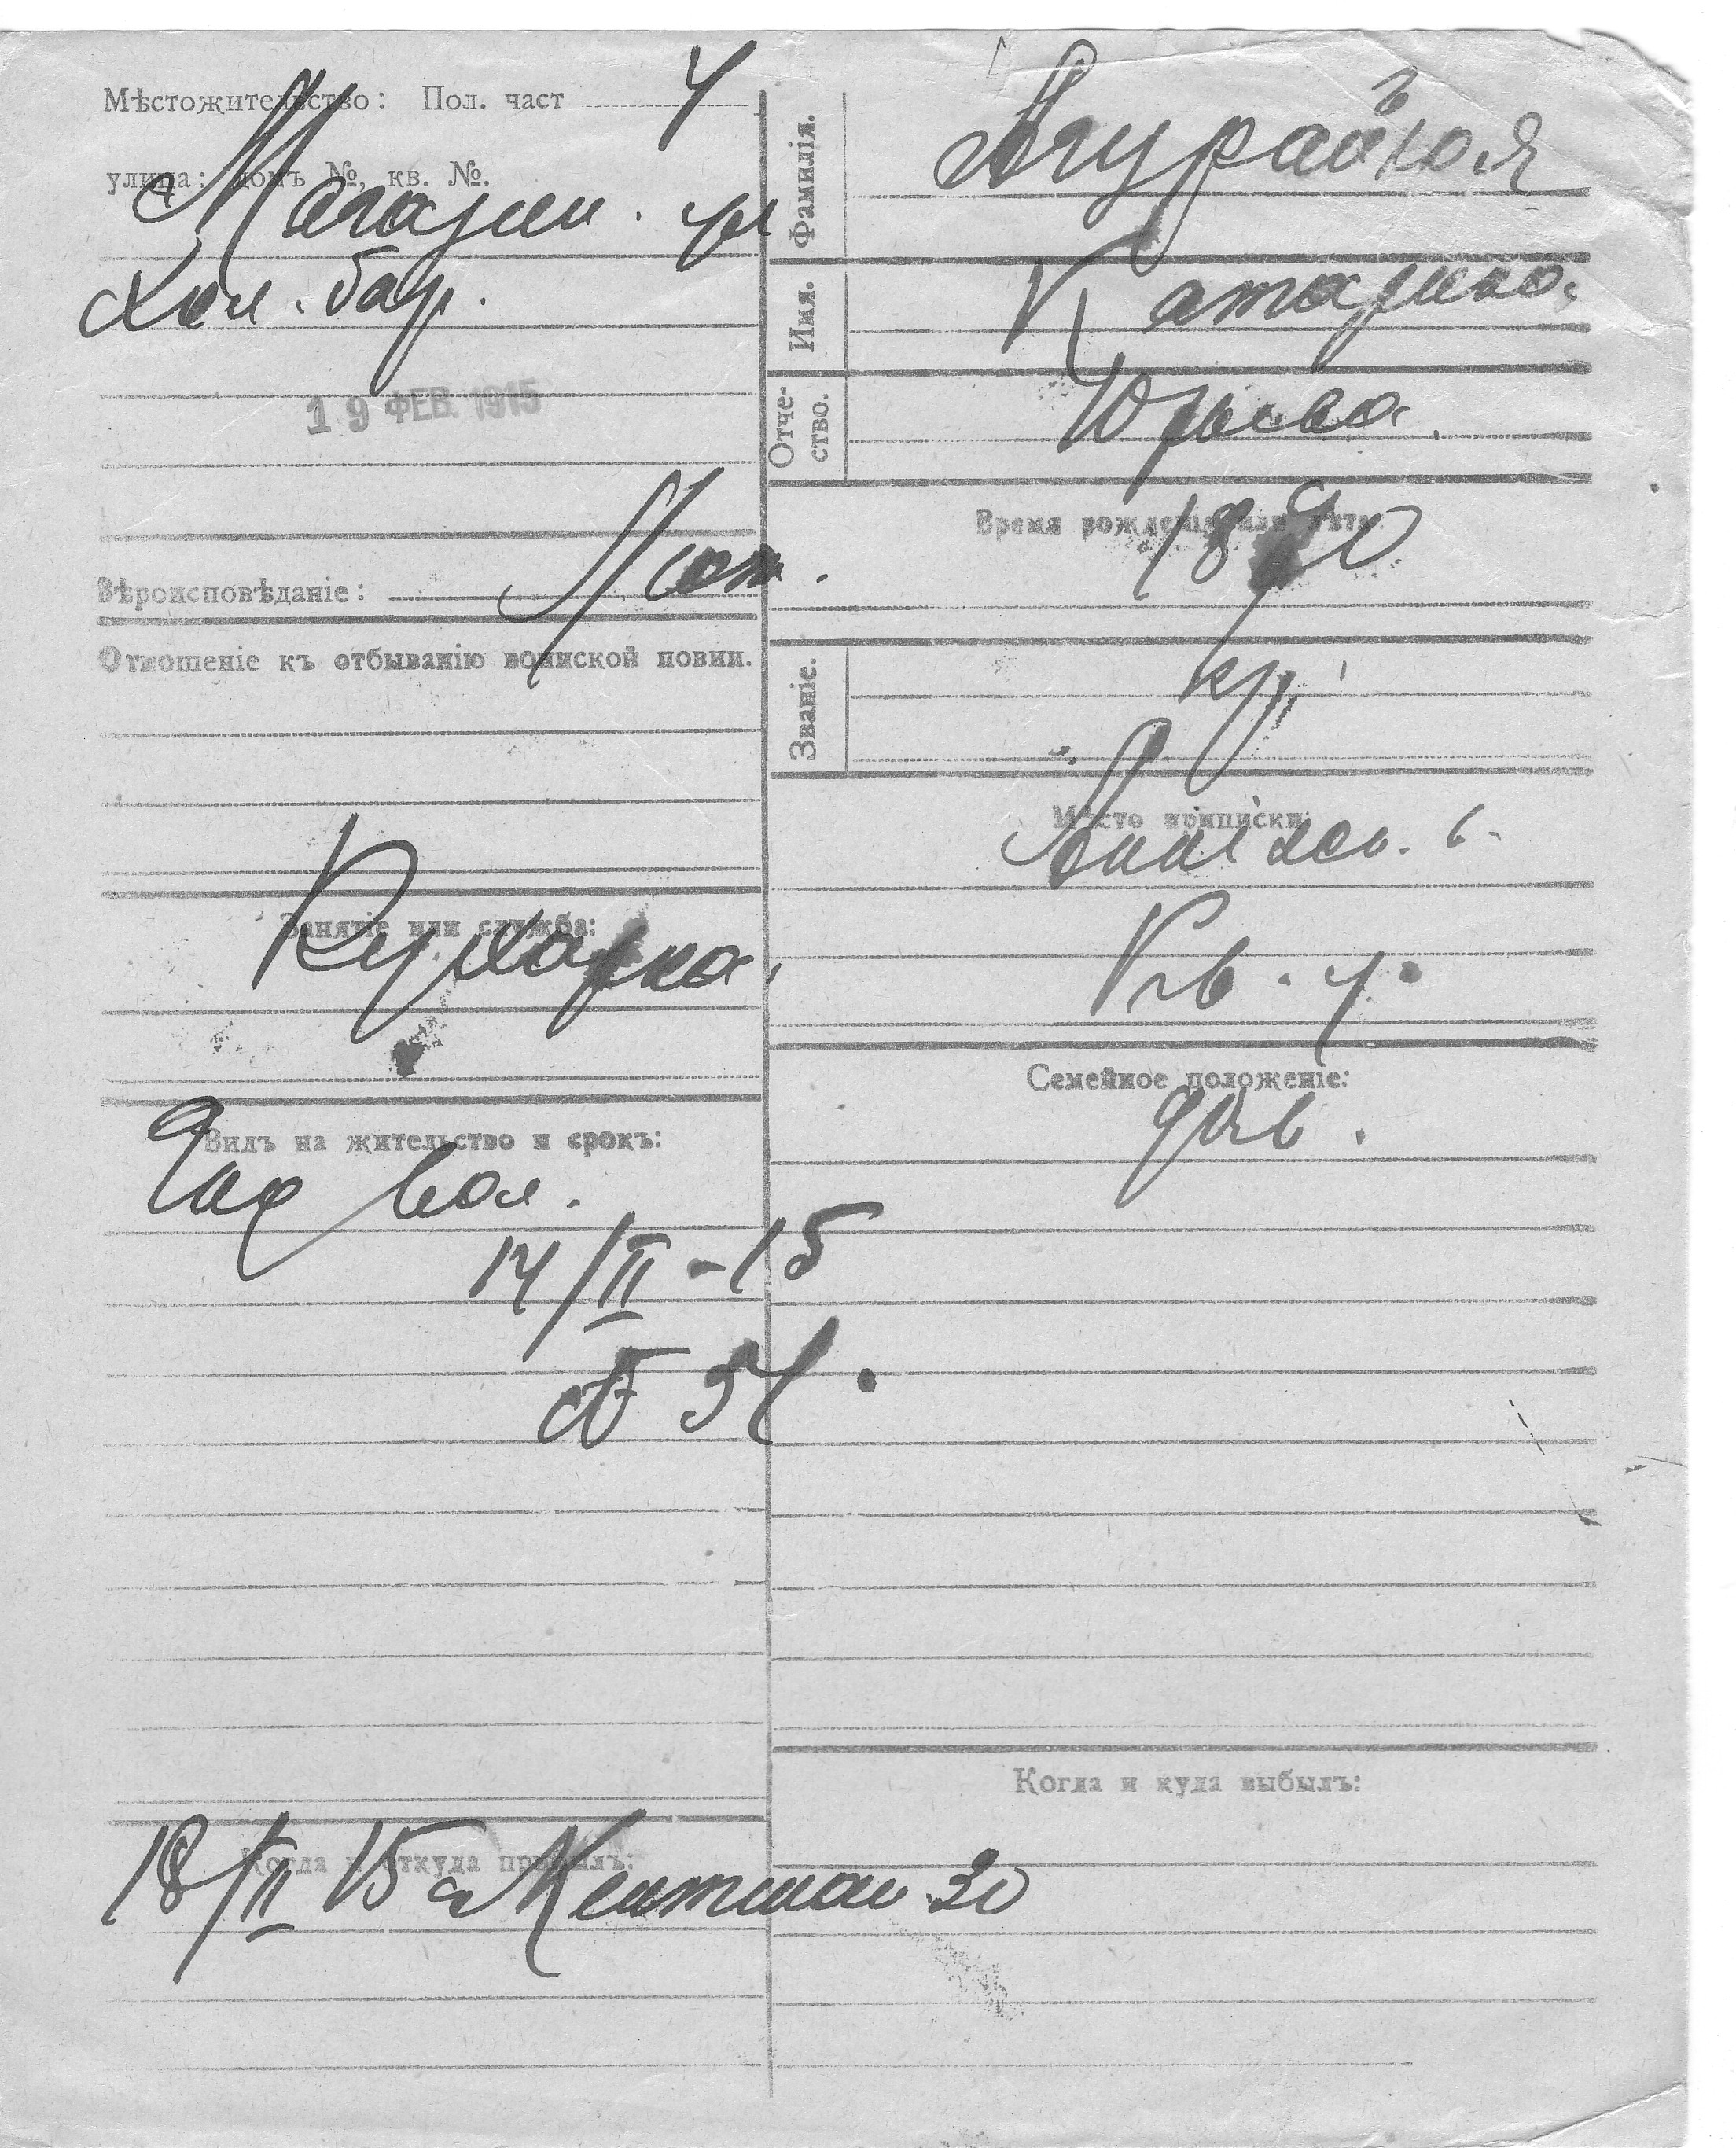 Мѣстожительство: Пол. част 4
улица: домъ №, кв. №.
Магазин. ул
Хол. бар.
19 ФЕВ. 1915
Вѣроисповѣданіе: Лют.
Отношеніе къ отбыванію воинской повин.
Занятіе или служба:
Кухарка
Видъ на жительство и срокъ:
вол.
14/II - 15
№ 54.
Когда и откуда прибылъ:
18/II 15
30
Фамилія.
Имя. Катарина.
Отчество. Юрьева.
Время рожденія или лѣта
1890
Званіе. кр.
Мѣсто приписки:
в.
у.
Семейное положеніе:
дѣв.
Когда и куда выбылъ: